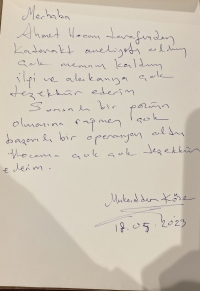 Merhaba
Ahmet Hocam tarafından
Katarakt ameliyatı oldum
çok memnun kaldım
ilgi ve alakanıza çok
teşekkür ederim
Sorunlu bir gözüm
olmasına rağmen çok
başarılı bir operasyon oldu
Hocama çok çok teşekkür
ederim.
18.05.2023